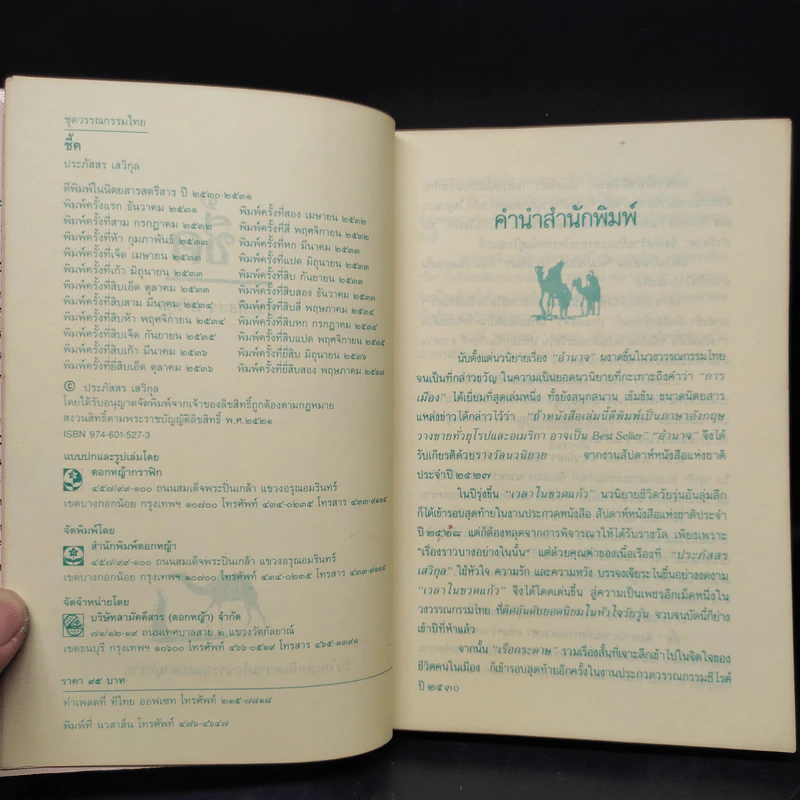 ชุดวรรณกรรมไทย
ชี้ค
ประภัสสร เสวิกุล
ตีพิมพ์ในนิตยสารสตรีสาร ปี ๒๕๓๐-๒๕๓๑
พิมพ์ครั้งแรก ธันวาคม ๒๕๓๑ พิมพ์ครั้งที่สอง เมษายน ๒๕๓๒
พิมพ์ครั้งที่สาม กรกฎาคม ๒๕๓๒ พิมพ์ครั้งที่สี่ พฤศจิกายน ๒๕๓๒
พิมพ์ครั้งที่ห้า กุมภาพันธ์ ๒๕๓๓ พิมพ์ครั้งที่หก มีนาคม ๒๕๓๓
พิมพ์ครั้งที่เจ็ด เมษายน ๒๕๓๓ พิมพ์ครั้งที่แปด มิถุนายน ๒๕๓๓
พิมพ์ครั้งที่เก้า มิถุนายน ๒๕๓๓ พิมพ์ครั้งที่สิบ กันยายน ๒๕๓๓
พิมพ์ครั้งที่สิบเอ็ด ตุลาคม ๒๕๓๓ พิมพ์ครั้งที่สิบสอง ธันวาคม ๒๕๓๓
พิมพ์ครั้งที่สิบสาม มีนาคม ๒๕๓๔ พิมพ์ครั้งที่สิบสี่ พฤษภาคม ๒๕๓๔
พิมพ์ครั้งที่สิบห้า พฤศจิกายน ๒๕๓๔ พิมพ์ครั้งที่สิบหก กรกฎาคม ๒๕๓๕
พิมพ์ครั้งที่สิบเจ็ด กันยายน ๒๕๓๕ พิมพ์ครั้งที่สิบแปด พฤศจิกายน ๒๕๓๕
พิมพ์ครั้งที่สิบเก้า มีนาคม ๒๕๓๖ พิมพ์ครั้งที่ยี่สิบ มิถุนายน ๒๕๓๖
พิมพ์ครั้งที่ยี่สิบเอ็ด ตุลาคม ๒๕๓๖ พิมพ์ครั้งที่ยี่สิบสอง พฤษภาคม ๒๕๓๗
© ประภัสสร เสวิกุล
โดยได้รับอนุญาตจัดพิมพ์จากเจ้าของลิขสิทธิ์ถูกต้องตามกฎหมาย
สงวนสิทธิ์ตามพระราชบัญญัติลิขสิทธิ์ พ.ศ.๒๕๒๑
ISBN 974-601-527-3
แบบปกและรูปเล่มโดย
ดอกหญ้ากราฟิก
๔๕๗/๙๙-๑๐๐ ถนนสมเด็จพระปิ่นเกล้า แขวงอรุณอมรินทร์
เขตบางกอกน้อย กรุงเทพฯ ๑๐๗๐๐ โทรศัพท์ ๔๓๔-๐๒๓๕ โทรสาร ๔๓๓-๙๘๑๔
จัดพิมพ์โดย
สำนักพิมพ์ดอกหญ้า
๔๕๗/๙๙-๑๐๐ ถนนสมเด็จพระปิ่นเกล้า แขวงอรุณอมรินทร์
เขตบางกอกน้อย กรุงเทพฯ ๑๐๗๐๐ โทรศัพท์ ๔๓๔-๐๒๓๕ โทรสาร ๔๓๓-๙๘๑๔
จัดจำหน่ายโดย
บริษัทสามัคคีสาร (ดอกหญ้า) จำกัด
๗๑/๑๒-๑๙ ถนนเทศบาลสาย ๒ แขวงวัดกัลยาณ์
เขตธนบุรี กรุงเทพฯ ๑๐๖๐๐ โทรศัพท์ ๔๖๖-๐๕๑๙ โทรสาร ๔๖๕-๑๓๙๑
ราคา ๙๕ บาท
ทำเพลตที่ ทีไทย ออฟเซท โทรศัพท์ ๒๑๕-๗๘๑๘
พิมพ์ที่ นวสาส์น โทรศัพท์ ๔๗๖-๔๖๔๗
คำนำสำนักพิมพ์
นับตั้งแต่นวนิยายเรื่อง "อำนาจ" ผงาดขึ้นในวงวรรณกรรมไทย
จนเป็นที่กล่าวขวัญ ในความเป็นยอดนวนิยายที่กะเทาะถึงคำว่า "การ
เมือง" ได้เยี่ยมที่สุดเล่มหนึ่ง ทั้งยังสนุกสนาน เข้มข้น ขนาดนิตยสาร
แหล่งข่าวได้กล่าวไว้ว่า "ถ้าหนังสือเล่มนี้ตีพิมพ์เป็นภาษาอังกฤษ
วางขายทั่วยุโรปและอเมริกา อาจเป็น Best Seller" "อำนาจ" จึงได้
รับเกียรติด้วยรางวัลนวนิยาย จากงานสัปดาห์หนังสือแห่งชาติ
ประจำปี ๒๕๒๗
ในปีรุ่งขึ้น "เวลาในขวดแก้ว" นวนิยายชีวิตวัยรุ่นอันลุ่มลึก
ก็ได้เข้ารอบสุดท้ายในงานประกวดหนังสือ สัปดาห์หนังสือแห่งชาติประจำ
ปี ๒๕๒๘ แต่ก็ต้องหลุดจากการพิจารณาให้ได้รับรางวัล เพียงเพราะ
"เรื่องราวบางอย่างในนั้น" แต่ด้วยคุณค่าของเนื้อเรื่องที่ "ประภัสสร
เสวิกุล" ใช้หัวใจ ความรัก และความหวัง บรรจงเจียระไนขึ้นอย่างงดงาม
"เวลาในขวดแก้ว" จึงได้โดดเด่นขึ้น สู่ความเป็นเพชรอีกเม็ดหนึ่งใน
วงวรรณกรรมไทย ที่ติดอันดับยอดนิยมในหัวใจวัยรุ่น จวบจนบัดนี้ก็ย่าง
เข้าปีที่ห้าแล้ว
จากนั้น "เรือกระดาษ" รวมเรื่องสั้นที่เจาะลึกเข้าไปในจิตใจของ
ชีวิตคนในเมือง ก็เข้ารอบสุดท้ายอีกครั้งในงานประกวดวรรณกรรมซีไรต์
ปี ๒๕๓๐